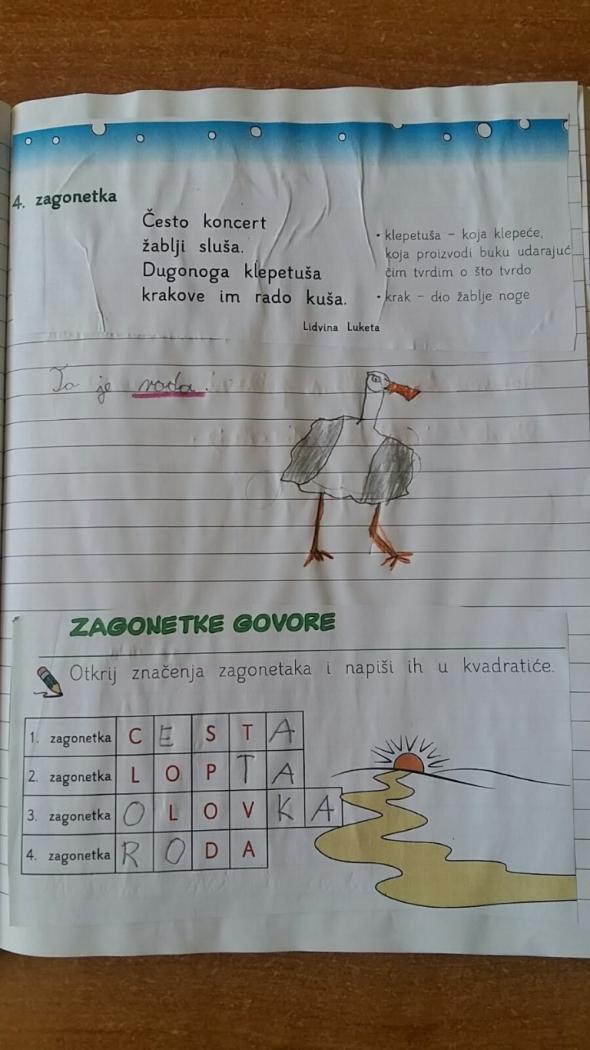 4. zagonetka
Često koncert
žablji sluša.
Dugonoga klepetuša
krakove im rado kuša.
Lidvina Luketa
• klepetuša - koja klepeće,
koja proizvodi buku udarajuć
čim tvrdim o što tvrdo
• krak - dio žablje noge
To je roda.
ZAGONETKE GOVORE
Otkrij značenja zagonetaka i napiši ih u kvadratiće.
1. zagonetka C E S T A
2. zagonetka L O P T A
3. zagonetka O L O V K A
4. zagonetka R O D A